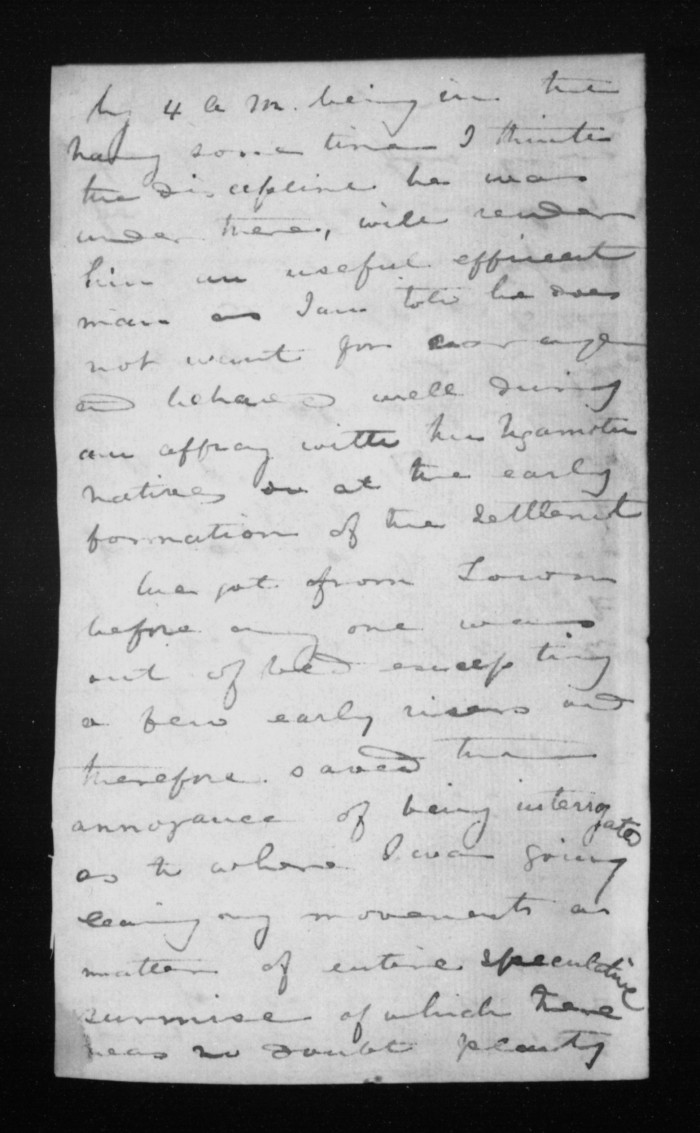 by 4 a m. being in the
navy some time I think
the discipline he was
under there, will render
him an useful efficient
man as I am told he does
not want for courage
and behaved well during
an affray with the Ngamotu
natives on at the early
formation of the Settlement
We got from Town
before any one was
out of bed excepting
a few early risers and
therefore saved the
annoyance of being interrogated
as to where I was going
leaving my movements as
matter of entire speculative
surmise of which there
was no doubt plenty